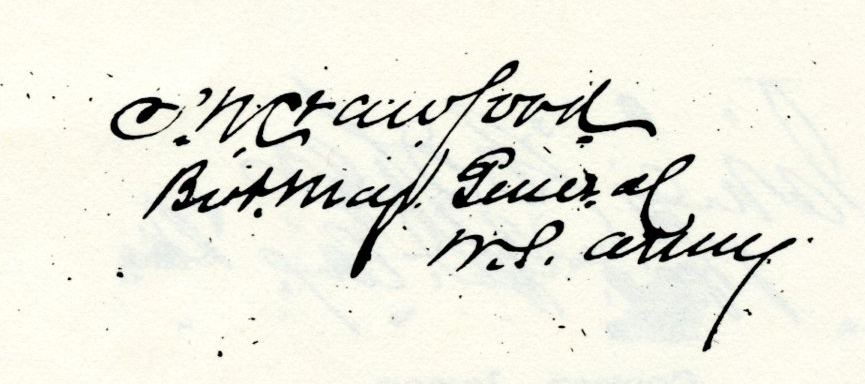 S. W. Crawford
Bvt. Maj. General
U.S. Army